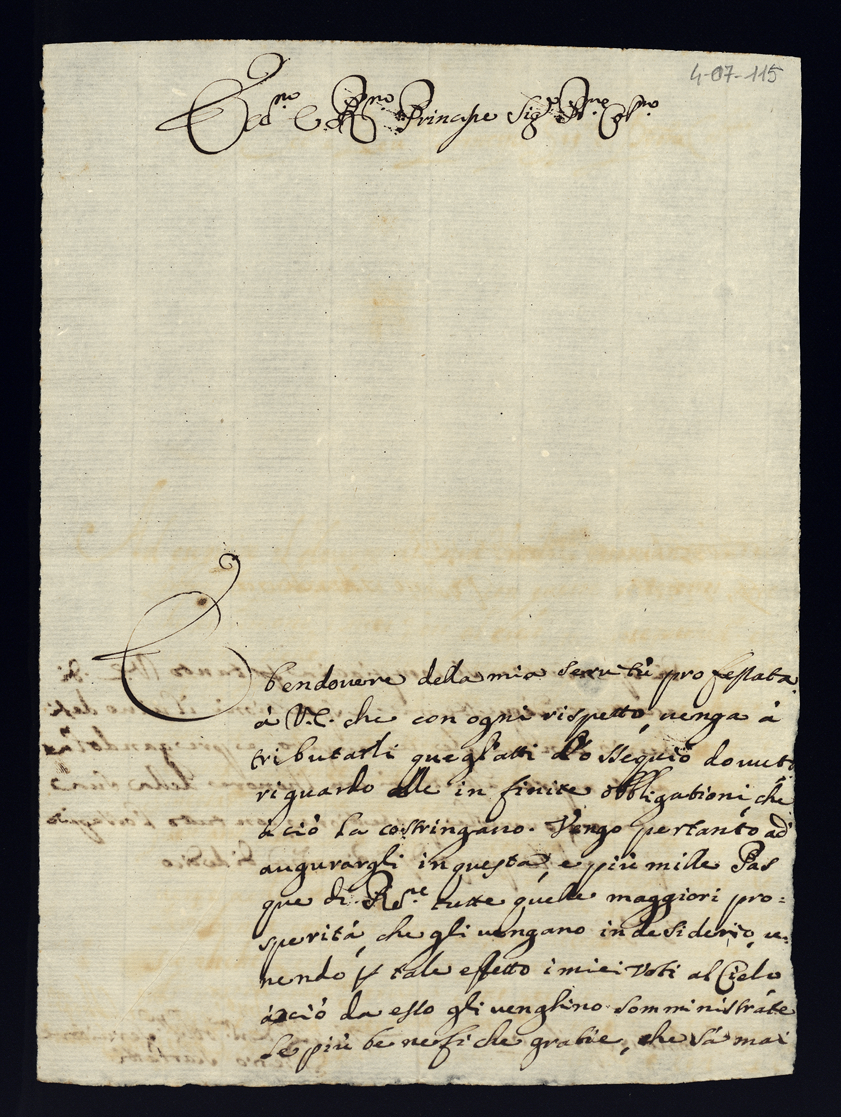 4-07-115
Ecc.mo e R.mo Principe Sig.e P.ne Col.mo
E bendovere della mia servitù professata
à V.E. che con ogni rispetto, venga à
tributarli quegl'atti d'ossequio dovuto
riguardo alle infinite obbligationi, che
a ciò la costringano. Vengo pertanto ad
augurargli in questa, e più mille Pas
que di Rs.ne tutte quelle maggiori pro=
sperità, che gli vengano in desiderio,
nendo p tale effetto i miei Voti al Cielo
acciò da esso gli venghino somministrate
le più benefiche gratie, che sà mai